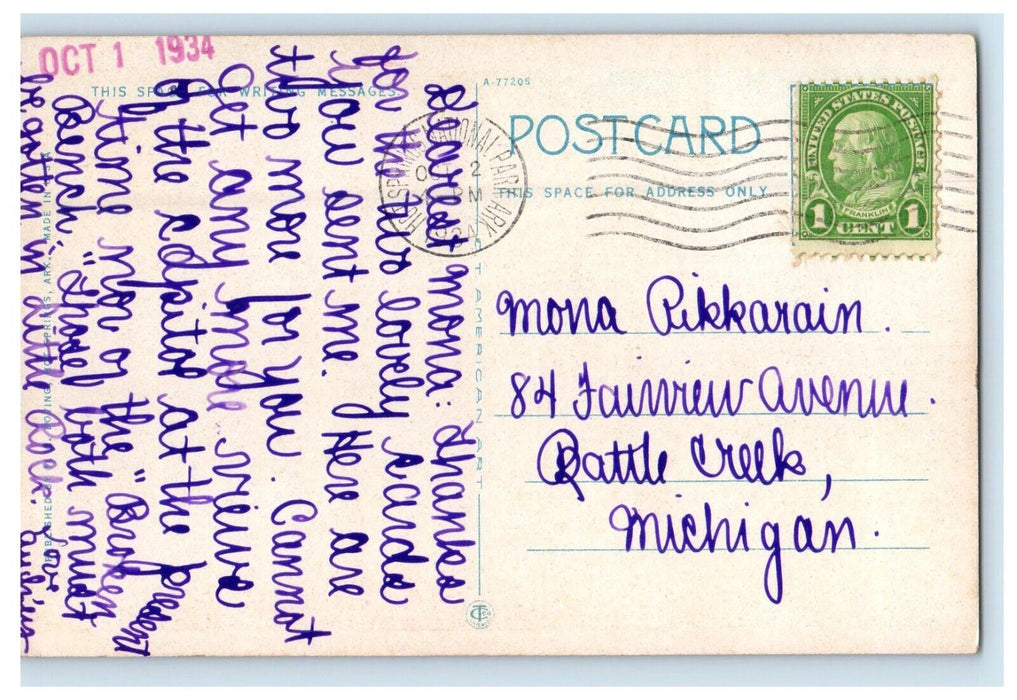 OCT 1 1934
THIS SPACE FOR WRITING MESSAGES
A-77205
POSTCARD
THIS SPACE FOR ADDRESS ONLY
HOT SPRINGS NATIONAL PARK ARK.
OCT 2
PM
1934
UNITED STATES POSTAGE
FRANKLIN
1 CENT 1
Mona Pikkarain.
84 Fairview Avenue.
Battle Creek,
Michigan.
Dearest Mona: Thanks
for the two lovely cards
you sent me. Here are
two more for you. Cannot
get any more views
of the Capitol at the present
time nor of the "Broken
Bench". "Those" both must
be gotten in Little Rock. Love
C.T. AMERICAN ART
MADE IN U.S.A.